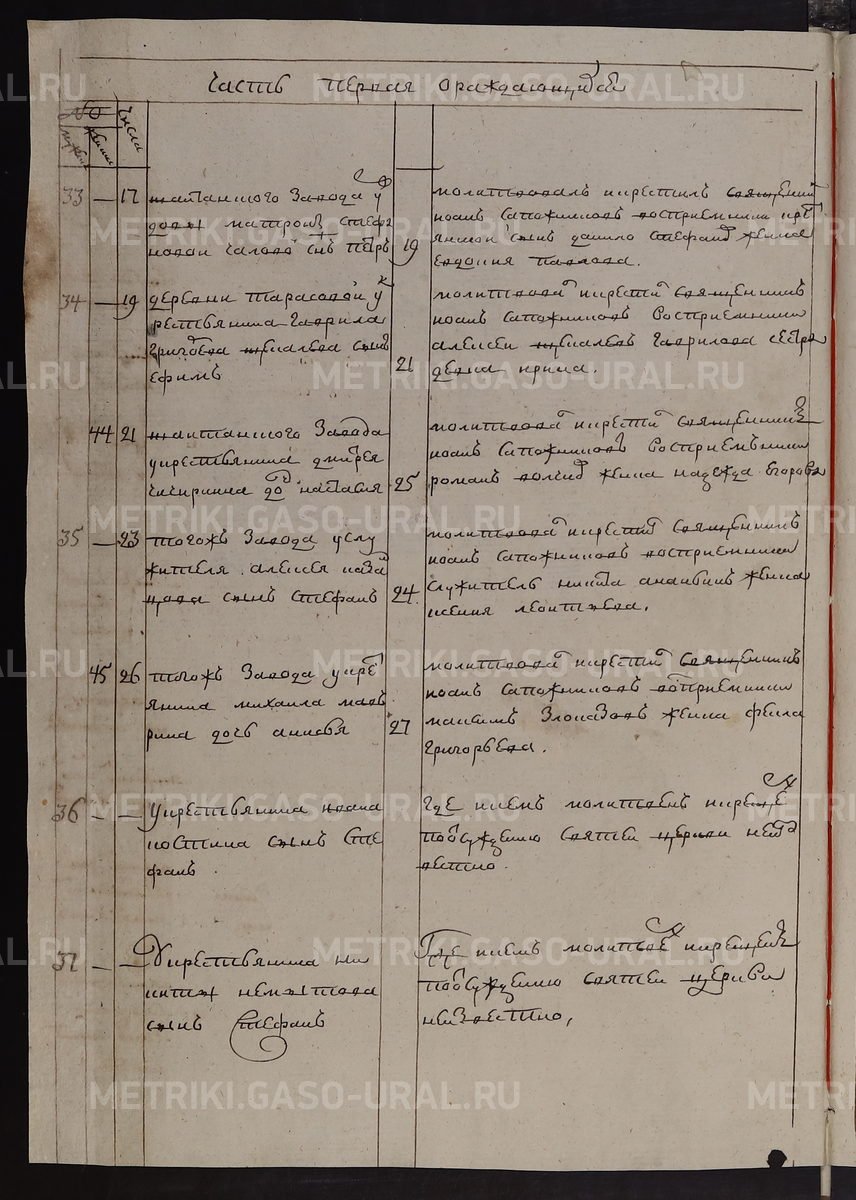 Часть первая ораждающихся
№
мужеск
женск
числа
33 — 17
шайтанского завода у
вдовы матроны стефа
новой сынъ петръ
19
молитвовалъ и крестилъ священникъ
иоанъ сапожниковъ восприемники кре
янинъ сынъ данило стефановъ женка
евдокия павлова.
34 — 19
деревни тарасовой у к
рестьянина гаврила
григорьева сынъ
ефимъ
21
молитвовалъ и крестилъ священникъ
иоанъ сапожниковъ восприемники
алексеи гаврилова сестра
девка ирина.
44 21
шайтанского завода
у крестьянина дмитрея
чичиркина дочь наталия
25
молитвовалъ и крестилъ священникъ
иоанъ сапожниковъ восприемники
романъ женка надежда егорова
35 — 23
тогожъ завода у слу
жителя алексея каза
нцова сынъ стефанъ
24
молитвовалъ и крестилъ священникъ
иоанъ сапожниковъ восприемники
служитель никита ананьинъ женка
ксения леонтьева.
45 26
тогожъ завода у кре
янина михаила мавъ
рина дочь
27
молитвовалъ и крестилъ священникъ
иоанъ сапожниковъ восприемники
максимъ злоказовъ женка фекла
григорьева.
36 — —
у крестьянина иоана
костина сынъ сте
фанъ
где и кемъ молитвенъ и крещенъ
святей церкви неизв
естно
37 — —
у крестьянина ни
киты немытова
сынъ стефанъ
где и кемъ и крещенъ
святей церкви
неизвестно,
METRIKI.GASO-URAL.RU